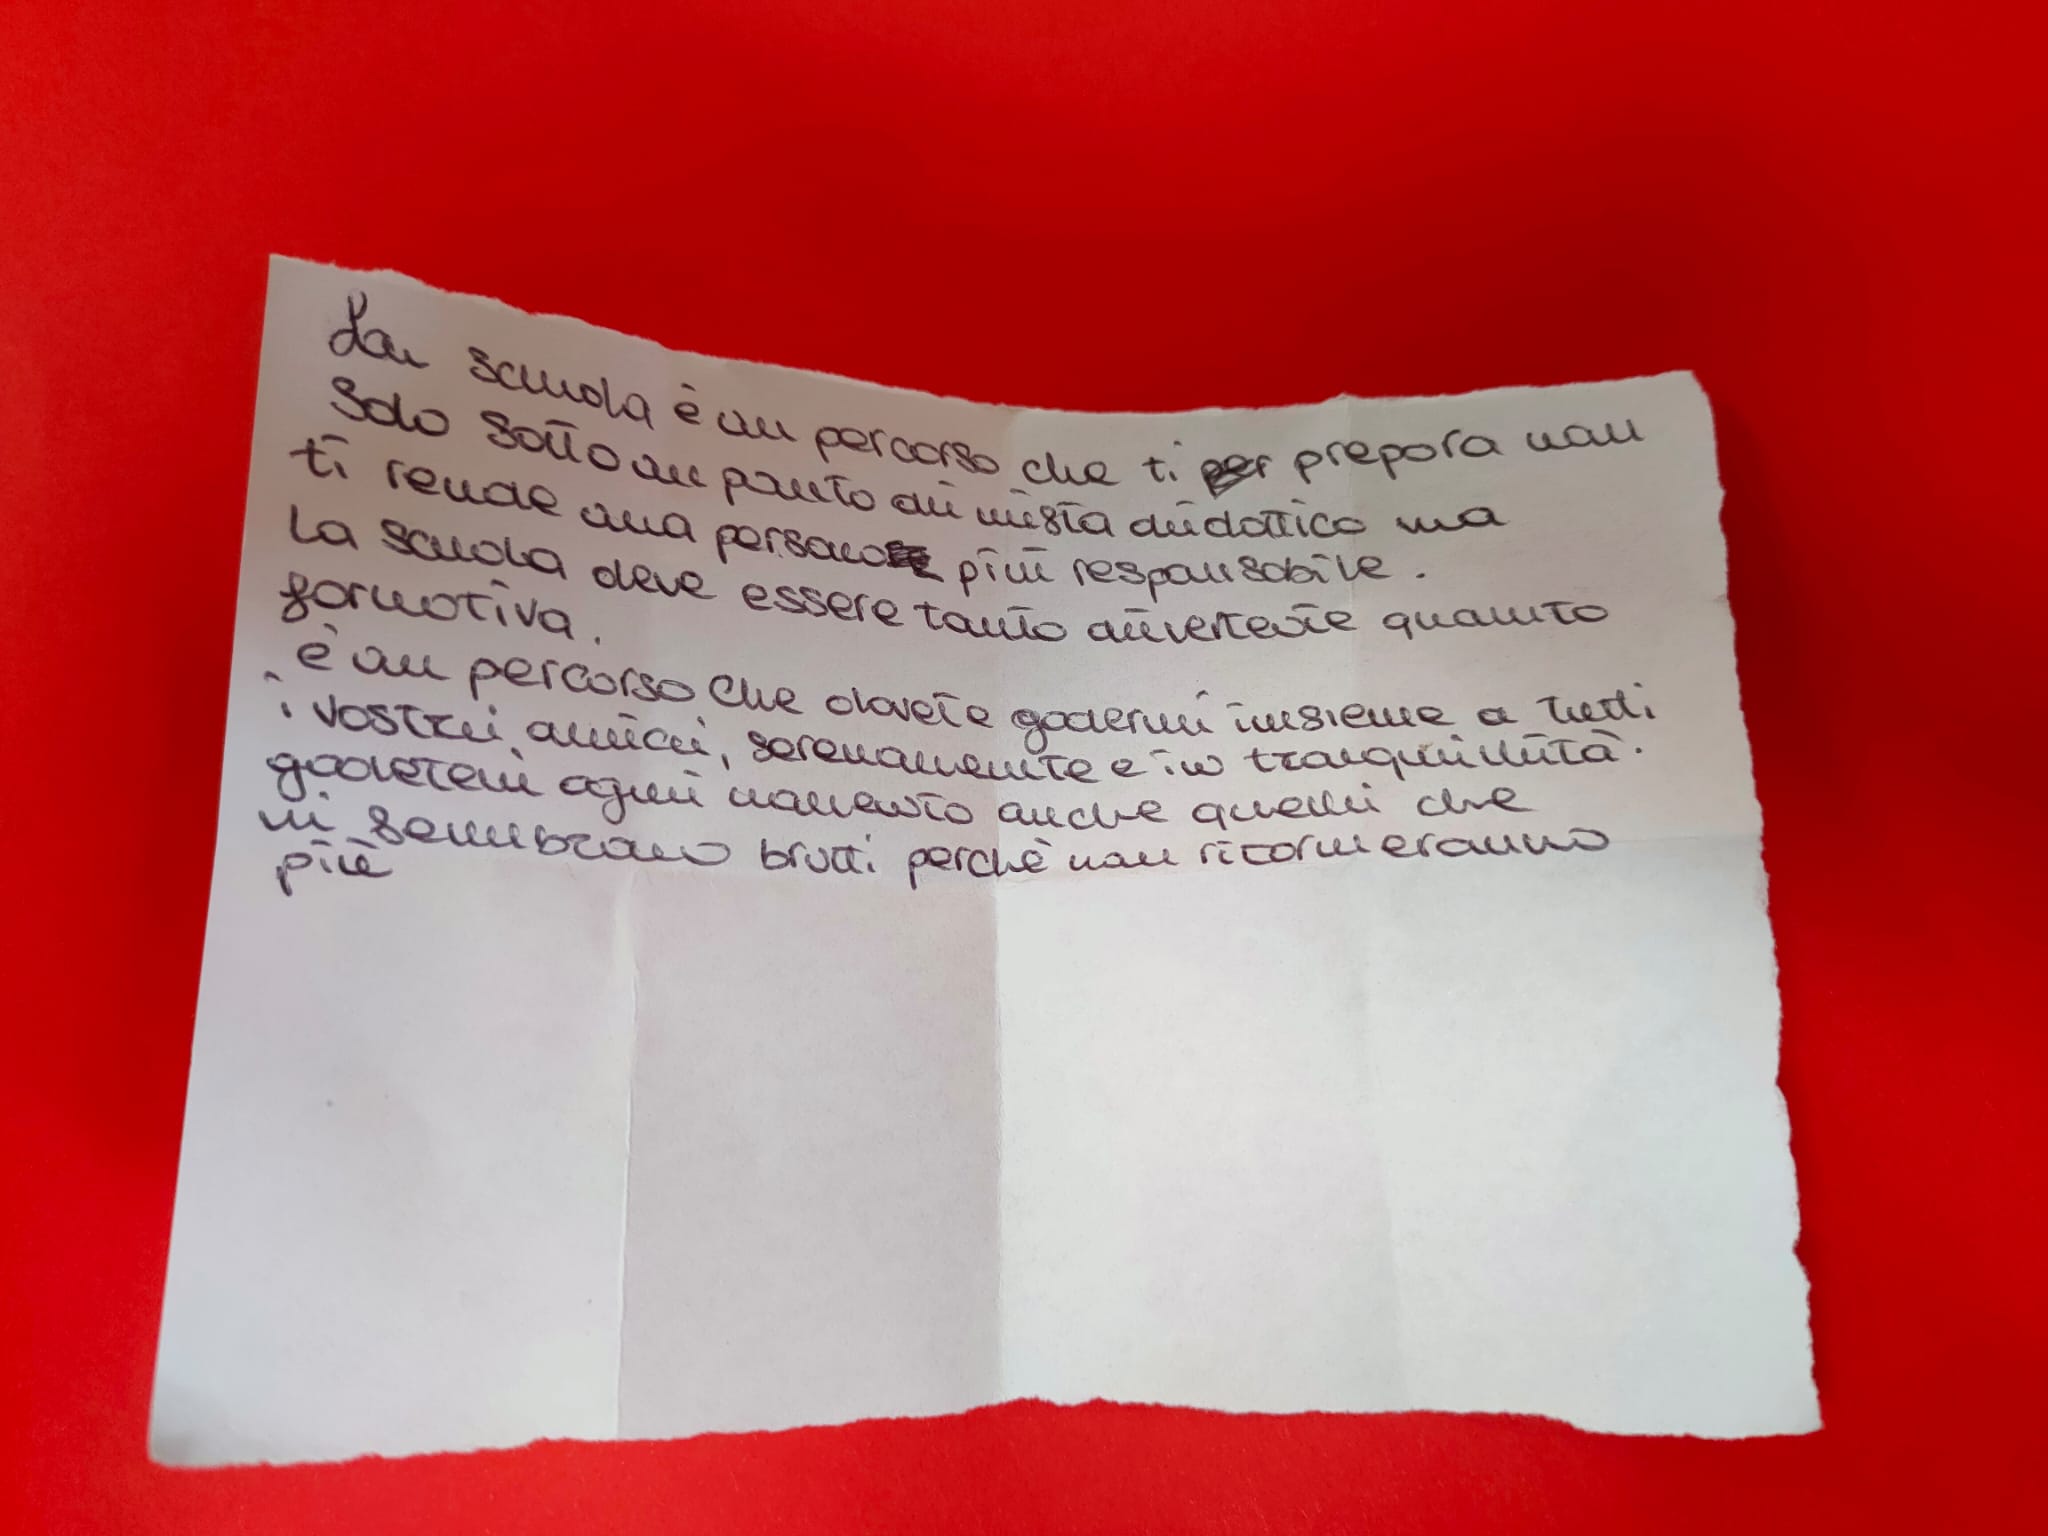 La scuola è un percorso che ti prepara non
solo sotto un punto di vista didattico ma
ti rende una persona più responsabile.
La scuola deve essere tanto divertente quanto
formativa.
è un percorso che dovete godervi insieme a tutti
i vostri amici, serenamente e in tranquillità.
godetevi ogni momento anche quelli che
vi sembrano brutti perchè non ritorneranno
più